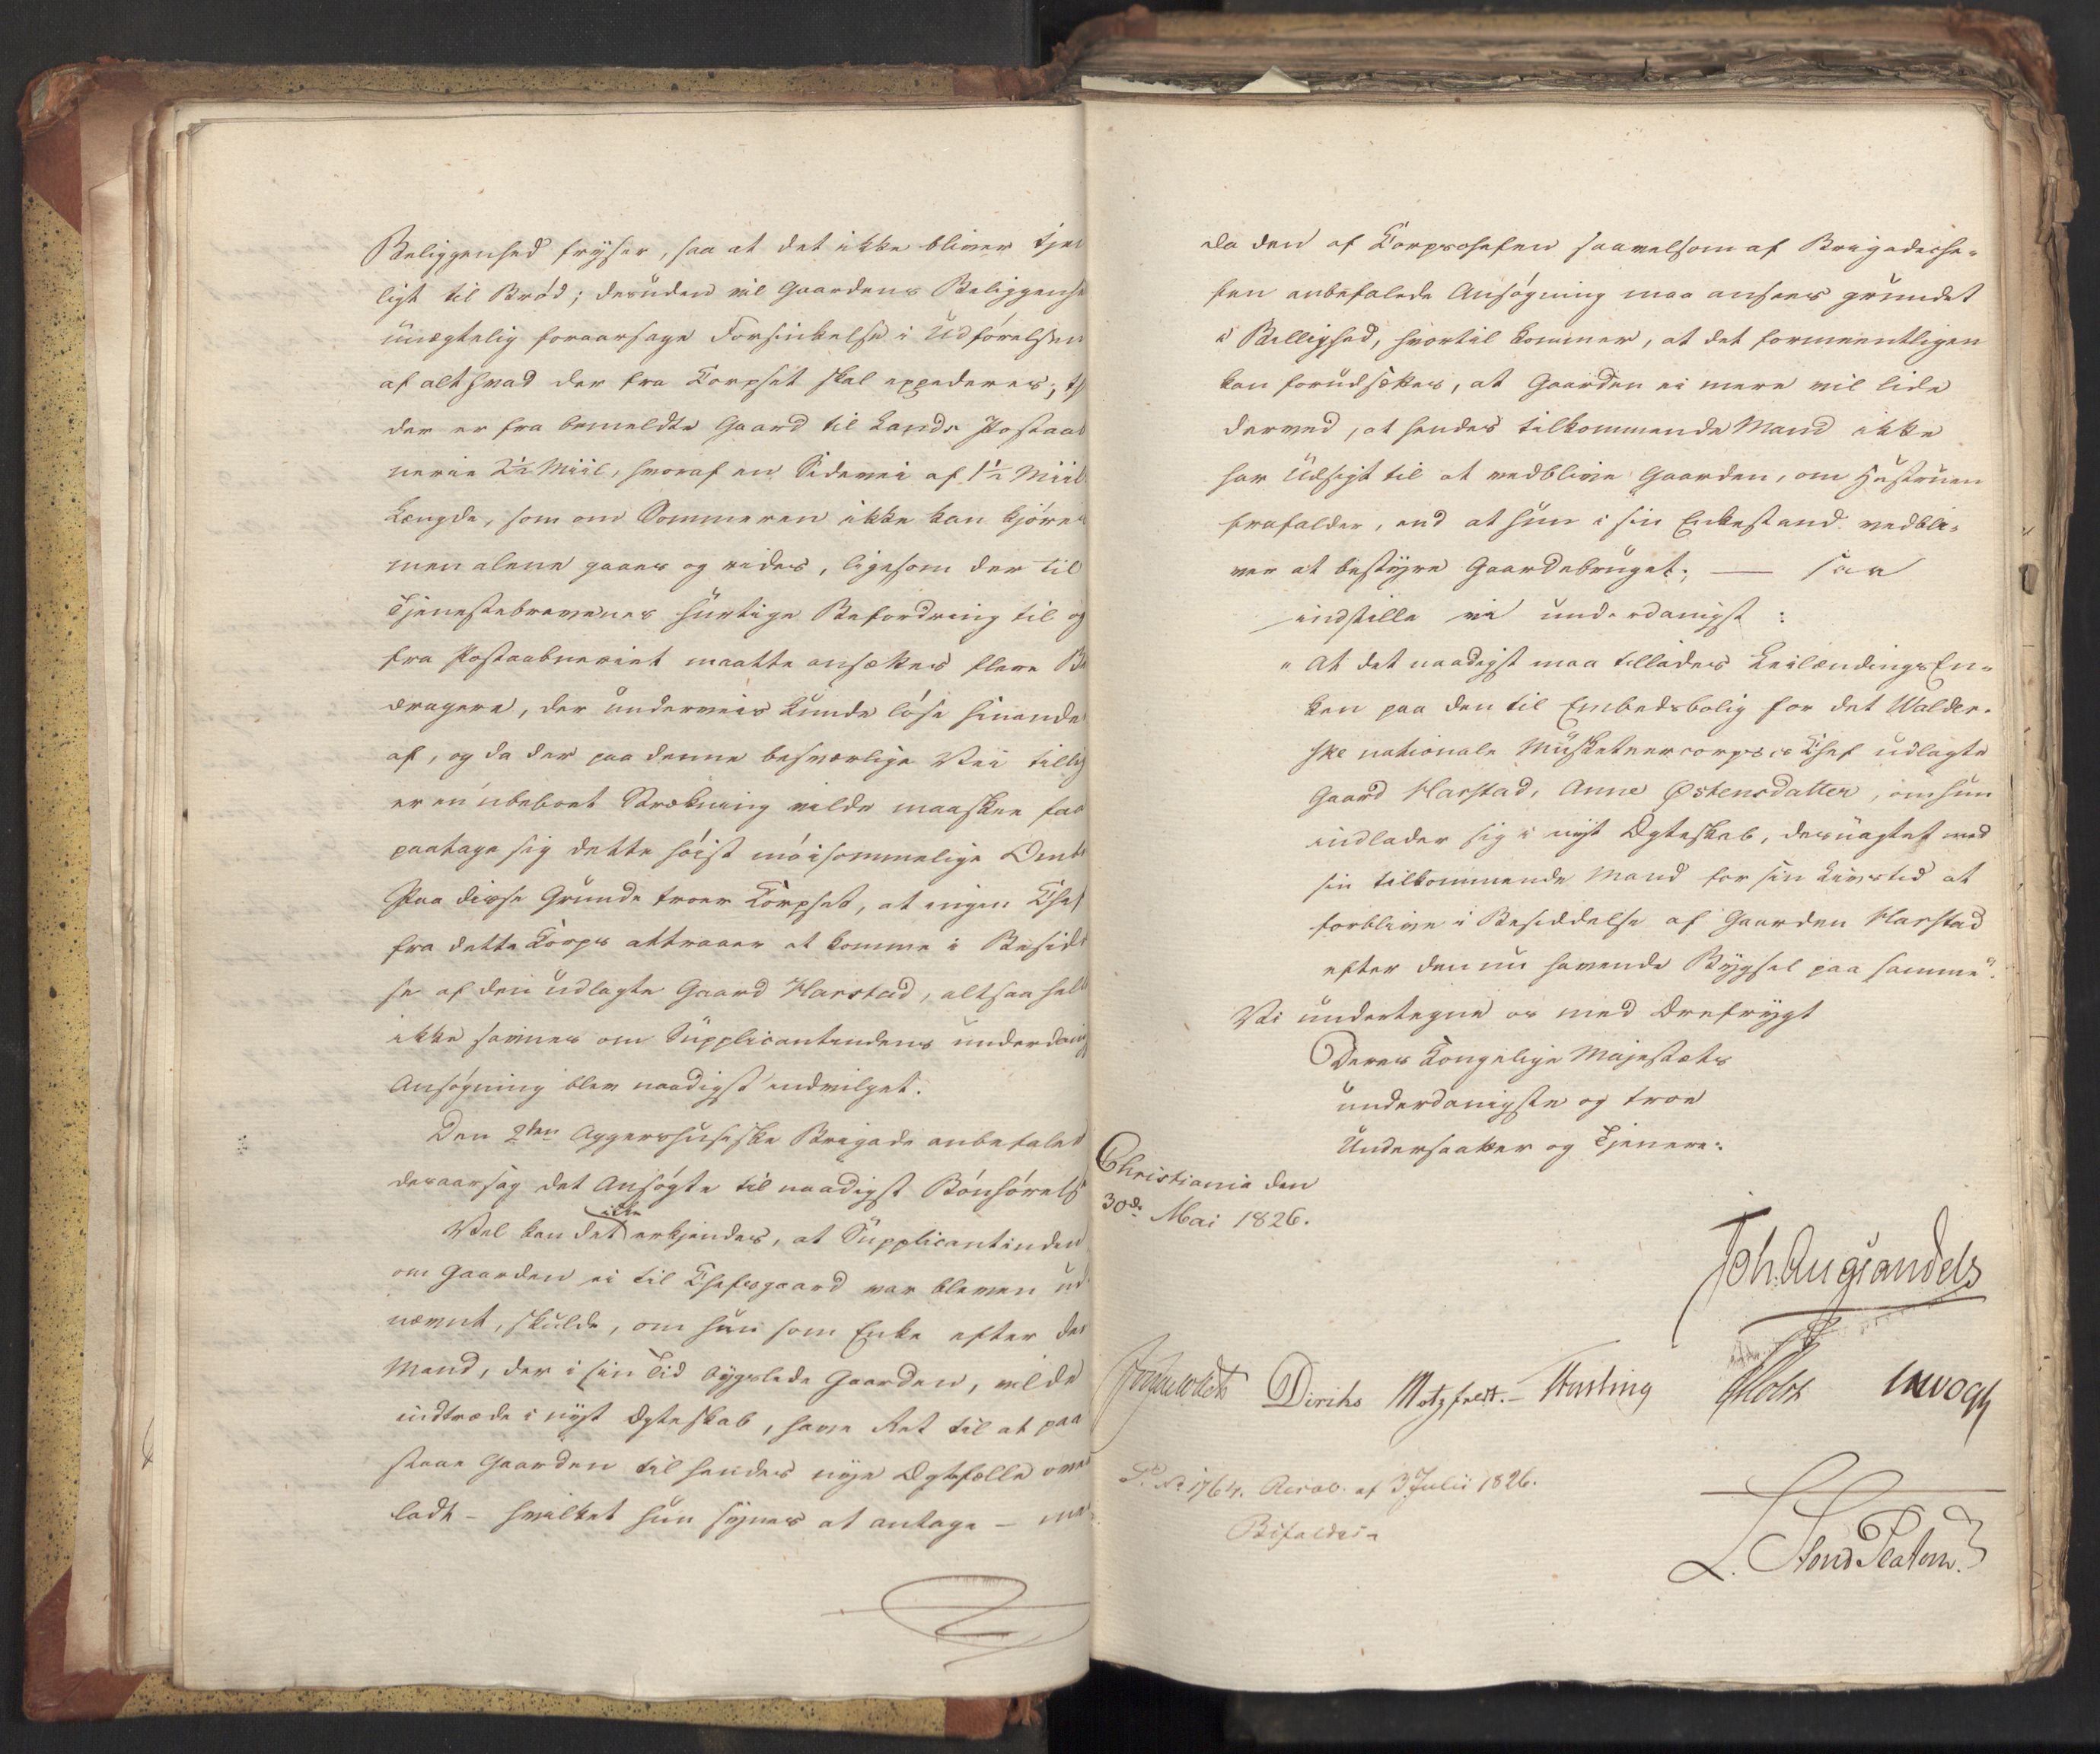 Beliggenhed fryser, saa at det ikke bliver tjen
ligt til Brød; desuden vil Gaardens Beliggenhe
unægtelig foraarsage Forsinkelse i Udførelsen
af alt hvad der fra Corpset skal expederes; th
der er fra bemeldte Gaard til Lands Postaab
nerie 2½ Miil, hvoraf en Sidevei af 1½ Miils
Længde, som om Sommeren ikke kan kjøres
men alene gaaes og rides, ligesom der til
Tjenestebrevenes hurtige Befordring til og
fra Postaabneriet maatte ansættes flere Br
dragere, der underveis kunde løse hinande
af, og da der paa denne besværlige Vei tillig
er en ubeboet Strækning vilde maaskee faa
paatage sig dette høist møisommelige Omb
Paa disse Grunde troer Corpset, at ingen Chef
fra dette Corps attraaer at komme i Besidd
se af den udlagte Gaard Harstad, altsaa hell
ikke savnes om Supplicantindens underdanig
Ansøgning blev naadigst indvilget.
Den 2den Aggershusiske Brigade anbefaled
desaarsag det Ansøgte til naadigst Bønhørels
ikke
Vel kan det erkjendes, at Supplicantinden
om Gaarden ei til Chefsgaard var bleven ud
nævnt, skulde, om hun som Enke efter den
Mand, der i sin Tid bygslede Gaarden, vilde
indtræde i nyt Ægteskab, have Ret til at paa
staae Gaarden til hendes nye Ægtefælle over
ladt - hvilket hun synes at antage - men
da den af Corpschefen saavelsom af Brigadeche-
fen anbefalede Ansøgning maa ansees grundet
i Billighed, hvortil kommer, at det formeentligen
kan forudsættes, at Gaarden ei mere vil lide
derved, at hendes tilkommende Mand ikke
har Udsigt til at vedblive Gaarden, om Hustruen
frafalder, end at hun i sin Enkestand vedbli-
ver at bestyre Gaardebruget; — saa
indstille vi underdanigst:
"At det naadigst maa tillades Leilændings En-
ken paa den til Embedsbolig for det Walder-
ske nationale Musketeercorpses Chef udlagte
Gaard Harstad, Anne Østensdatter, om hun
indlader sig i nyt Ægteskab, desuagtet med
sin tilkommende Mand for sin Livstid at
forblive i Besiddelse af Gaarden Harstad
efter den nu havende Bygsel paa samme".
Vi undertegne os med Ærefrygt
Deres Kongelige Majestæts
underdanigste og troe
Undersaatter og Tjenere:
Christiania den
30de Mai 1826.
Joh. Aug Sandels
Diriks Motzfeldt.- Fasting PHolst
L. StoudPlatou.
P. No 1764. Resol. af 3 Julii 1826.
Bifaldes